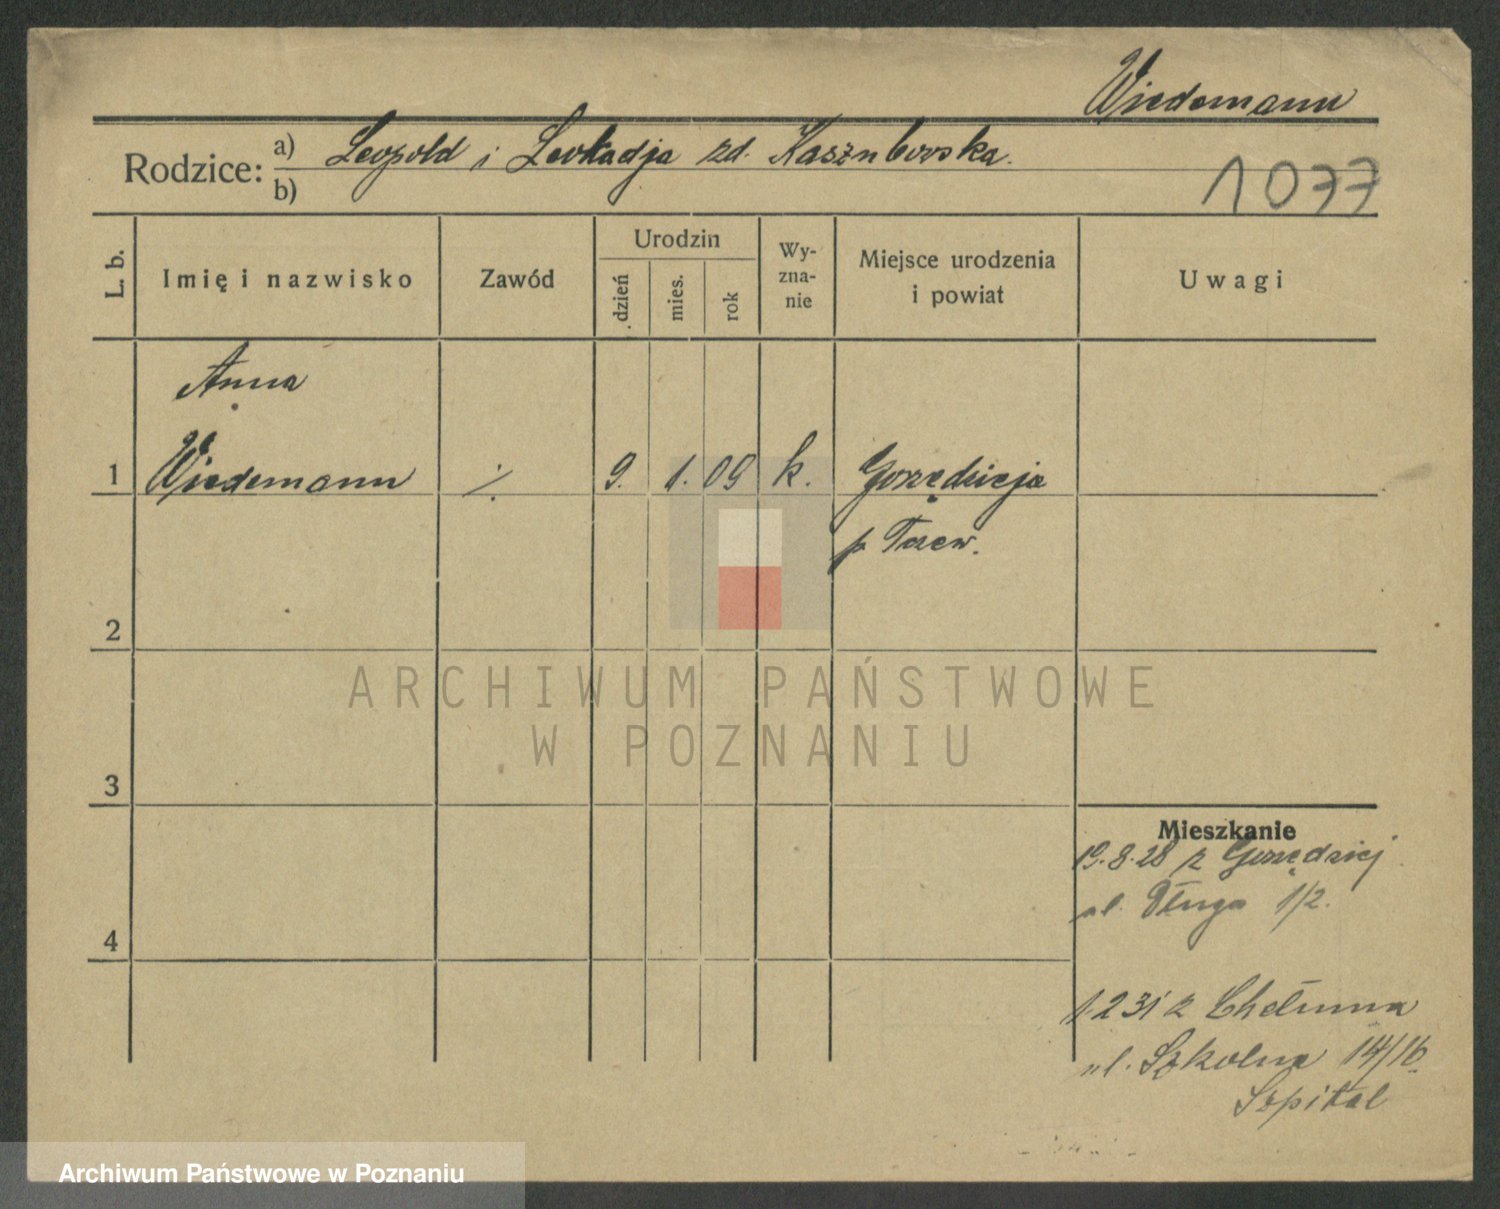 Wiedemann
Rodzice: a) Leopold i Leokadja zd. Kasznbowska.
b)
1077
L. b.
Imię i nazwisko
Zawód
Urodzin
dzień
mies.
rok
Wy-
zna-
nie
Miejsce urodzenia
i powiat
Uwagi
Anna
1 Wiedemann ·/. 9. 1. 09 k. Gorzędzieja
p Tczew.
2
3
4
Mieszkanie
19.8.28 z Gorzędziej
ul. Długa 1/2.
1 2 31 z Chełmna
ul. Szkolna 14/16
Szpital
ARCHIWUM PAŃSTWOWE
W POZNANIU
Archiwum Państwowe w Poznaniu